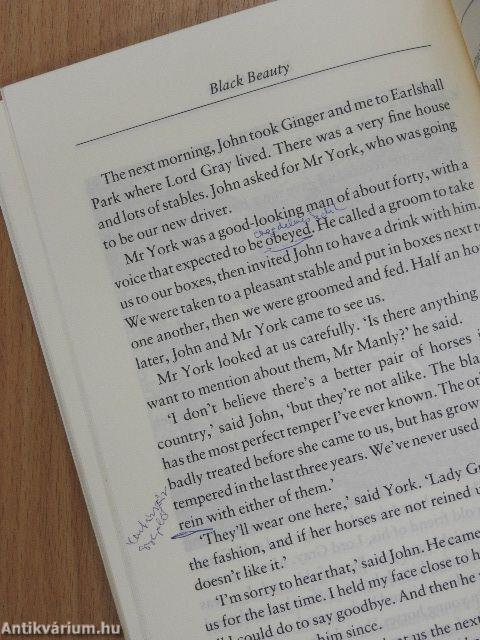 Black Beauty
The next morning, John took Ginger and me to Earlshall
Park where Lord Gray lived. There was a very fine house
and lots of stables. John asked for Mr York, who was going
to be our new driver.
Mr York was a good-looking man of about forty, with a
voice that expected to be obeyed. He called a groom to take
us to our boxes, then invited John to have a drink with him.
We were taken to a pleasant stable and put in boxes next to
one another, then we were groomed and fed. Half an ho
later, John and Mr York came to see us.
Mr York looked at us carefully. 'Is there anything
want to mention about them, Mr Manly?' he said.
'I don't believe there's a better pair of horses i
country,' said John, 'but they're not alike. The bla
has the most perfect temper I've ever known. The ot
badly treated before she came to us, but has grow
tempered in the last three years. We've never used
rein with either of them.'
'They'll wear one here,' said York. 'Lady G
the fashion, and if her horses are not reined u
doesn't like it.'
'I'm sorry to hear that,' said John. He came
us for the last time. I held my face close to h
I could do to say goodbye. And then he
him since.
t us the next
Antikvárium.hu